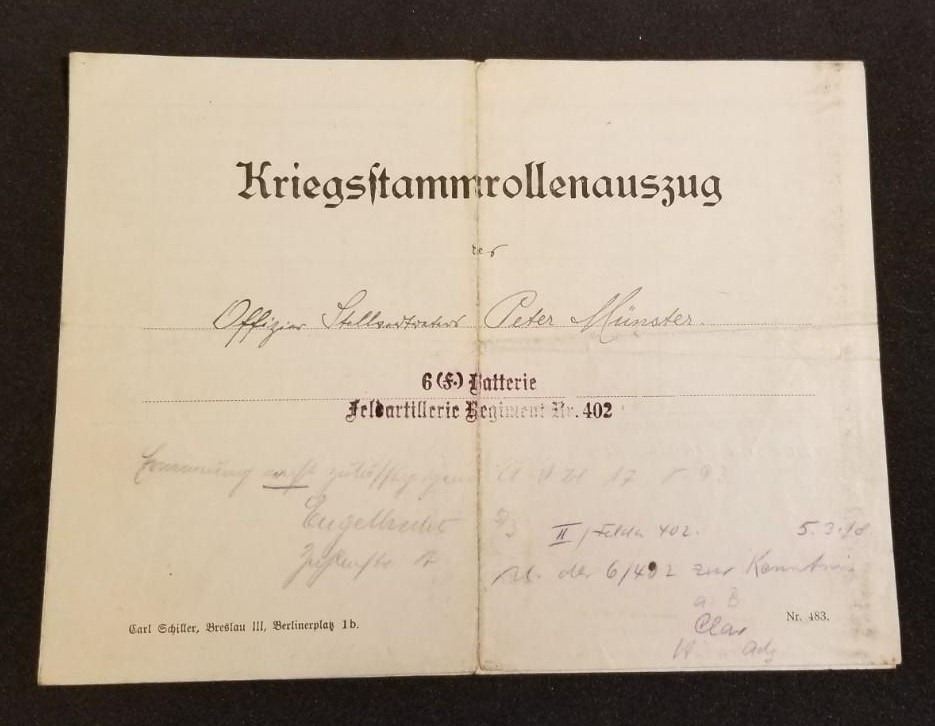 Kriegsstammrollenauszug
des
Offizier Stellvertreters Peter Münster.
6 (F.) Batterie
Feldartillerie Regiment Nr. 402
Ernennung nicht zulässig
Engelbrecht
II / Felda 402. 5.3.18
der 6/402 zur Kenntnis
a B
Clar
Adj
Carl Schiller, Breslau III, Berlinerplatz 1b.
Nr. 483.